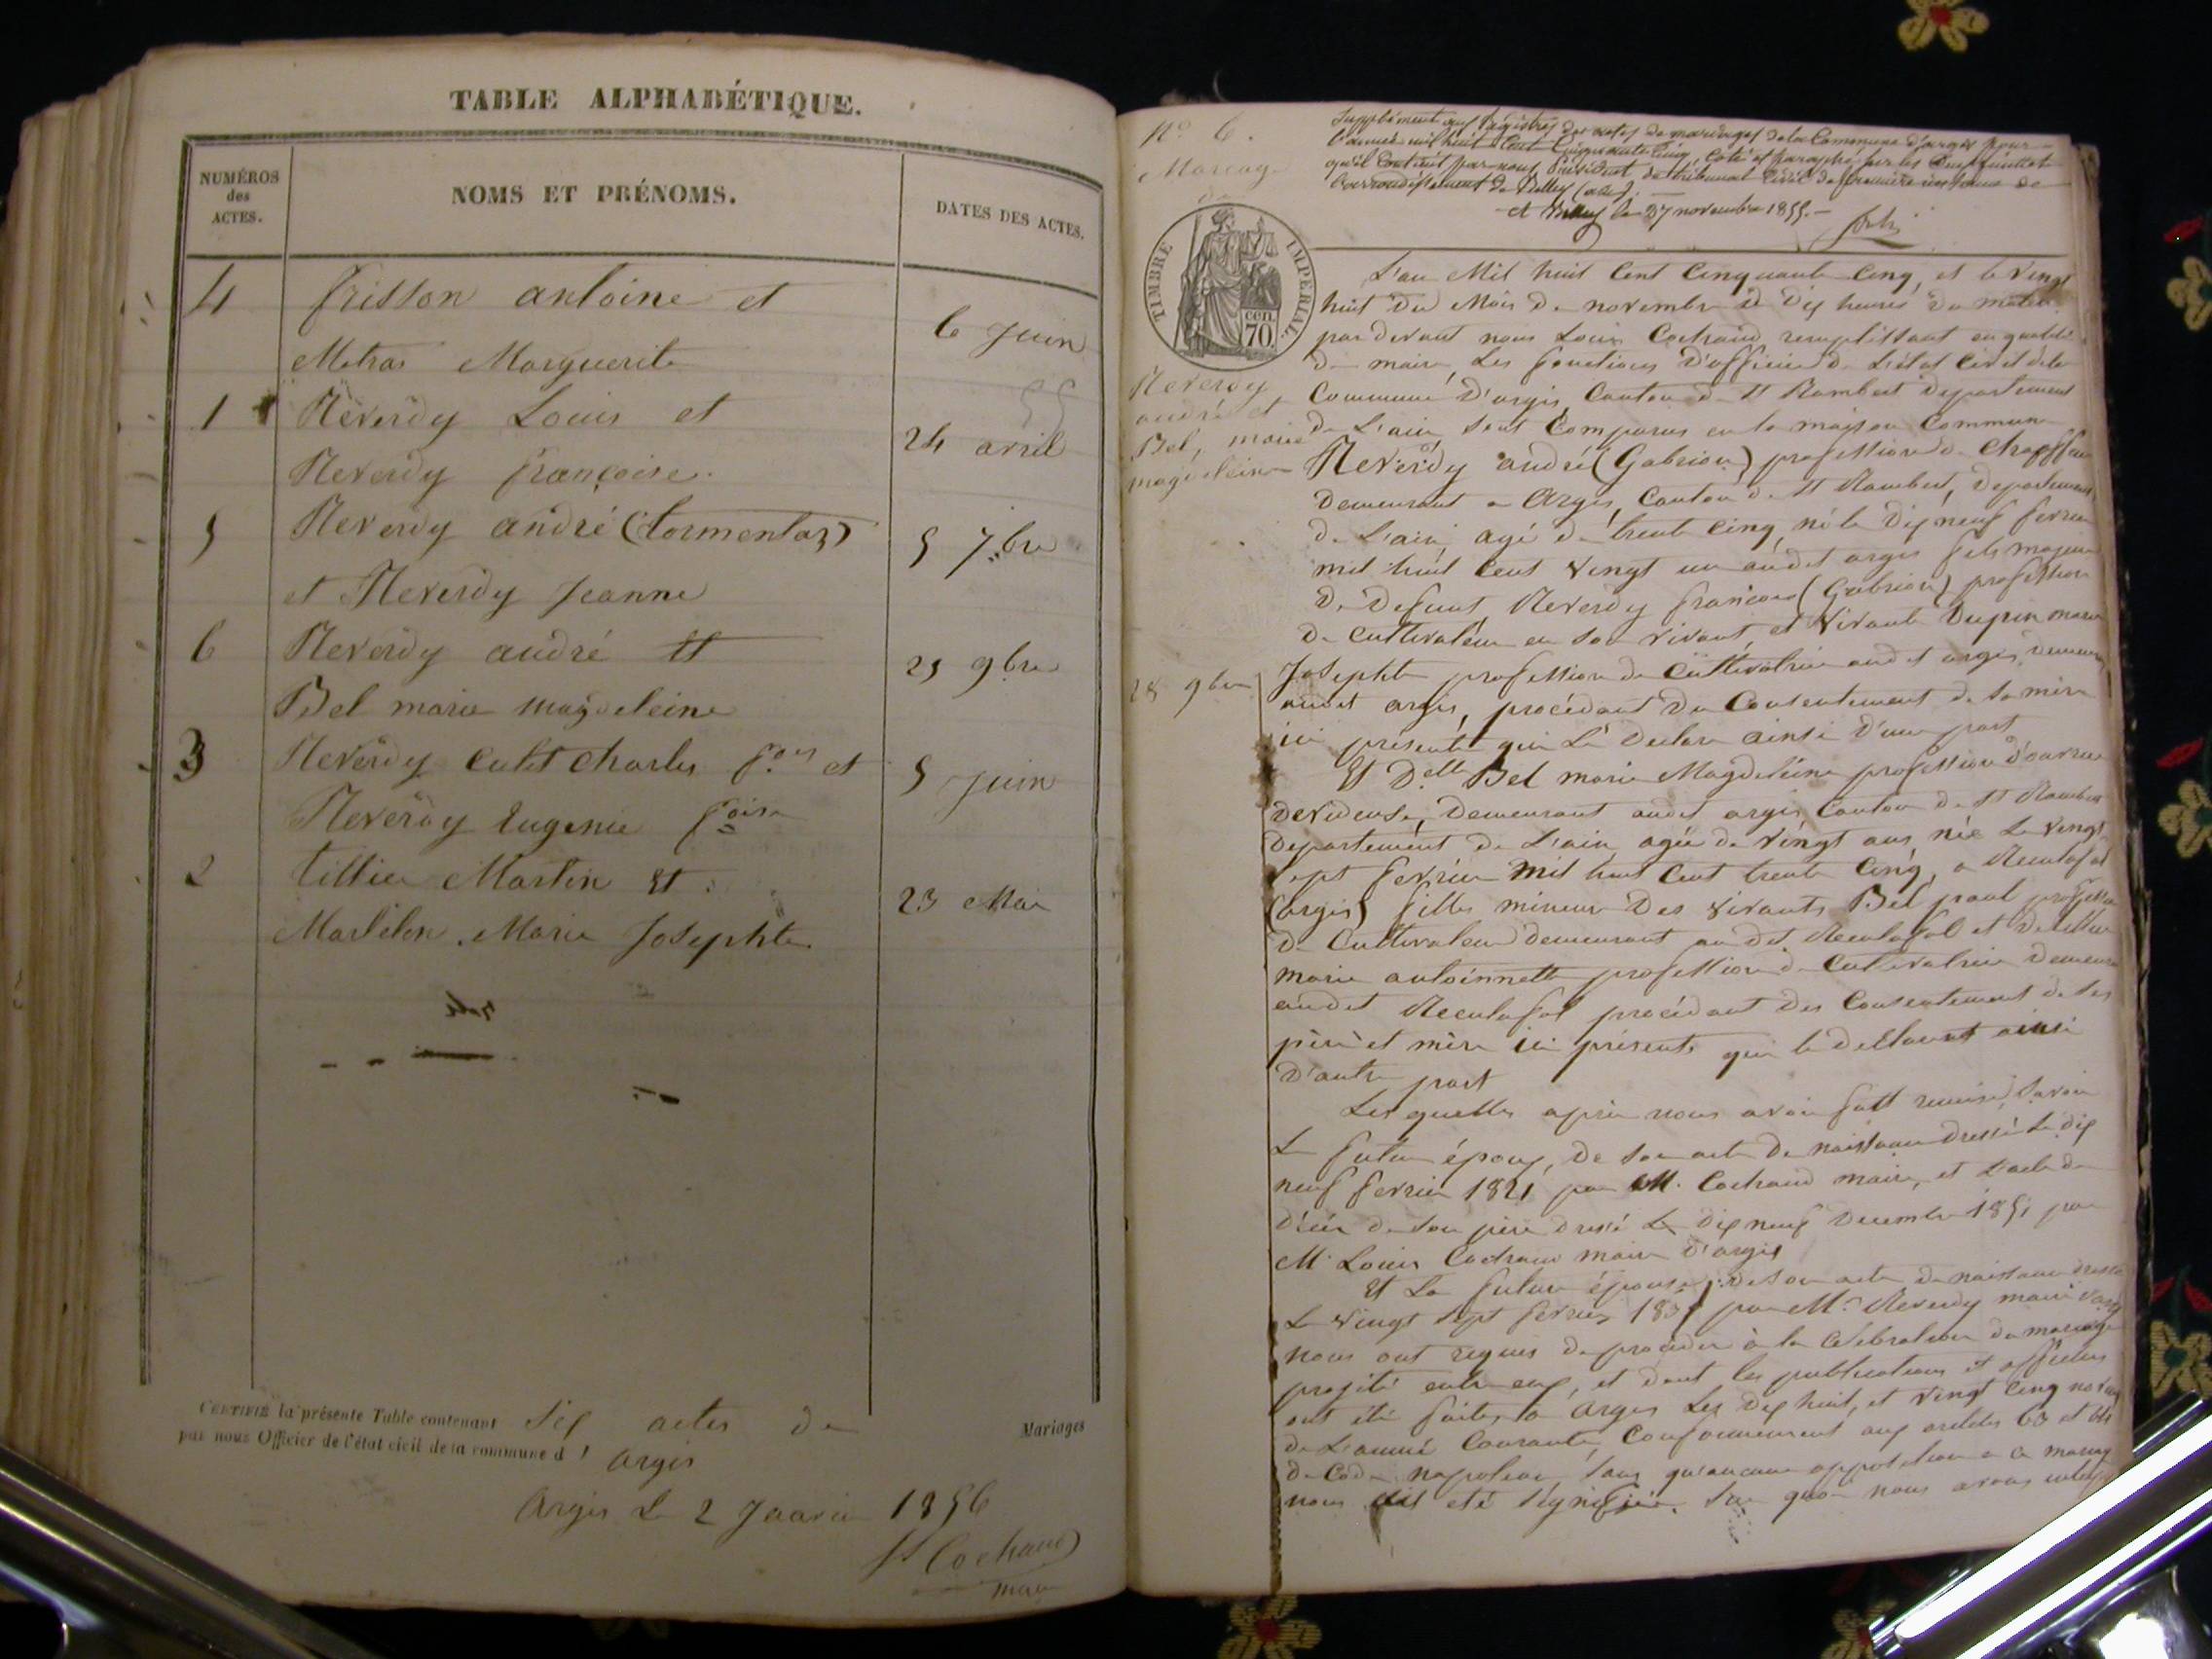 TABLE ALPHABÉTIQUE.
NUMÉROS des ACTES.
NOMS ET PRÉNOMS.
DATES DES ACTES.
4 frisson antoine et
Metras Marguerite
6 Juin
1 Réverdy Louis et
Reverdy françoise.
24 avril
55
5 Reverdy andré (tormentaz)
et Reverdy Jeanne
5 7.bre
6 Reverdy andré et
Bel marie magdeleine
25 9bre
3 Reverdy Culet Charles f.ois et
Reverdy Eugenie foise
5 Juin
2 tillier Martin Et
Martelon Marie Josephte.
23 Mai
CERTIFIÉ la présente Table contenant Six actes de Mariages
par nous Officier de l'état civil de la commune d' argis
Argis Le 2 Janvier 1856
Ls Cochaud
maire
N° 6.
Mariage
de
Reverdy
andré et
Bel, marie
magdeleine
28 9bre
Supplément aux registres des actes de mariages de la Commune d'argis pour
l'année mil huit cent cinquante cinq, coté et paraphé sur les
qu'il contient par nous Président du tribunal Civil de première instance de
l'arrondissement de Belley (ain).
A Belley le 27 novembre 1855.
TIMBRE IMPÉRIAL.
cen.
70
L'an Mil huit Cent Cinquante Cinq, et le vingt
huit du Mois de novembre à dix heures du matin
par devant nous Louis Cochaud remplissant en qualité
de maire, les fonctions d'officier de L'état civil de la
Commune D'argis, Canton de St Rambert Departement
de L'ain sont Comparus en la maison Commune
Reverdy andré (Gabrion) profession de
Demeurant a Argis, Canton de St Rambert, Departement
de L'ain, agé de trente cinq, né le Dix neuf fevrier
mil huit Cent vingt un audit argis fils majeur
de Defunt, Reverdy françois (Gabrion) profession
de Cultivateur en son vivant, et vivante Dupin marie
Josephte profession de Cultivatrice audit argis,
audit argis, procédant du Consentement de sa mère
ici présente qui Le Declare ainsi D'une part
Et D.elle Bel marie Magdeleine profession d'ouvriere
devideuse, Demeurant audit argis Canton de St Rambert
Departement de L'ain, agée de vingt ans née Le vingt
sept fevrier mil huit Cent trente Cinq, a Reculafol
(argis) fille mineur Des vivants Bel paul profession
de Cultivateur demeurant au dit Reculafol et
marie antoinnette profession de Cultivatrice Demeurant
audit Reculafol procédant Des Consentement de ses
père et mère ici présents qui le déclarent ainsi
D'autre part
Les quelles après nous avoir fait remise, Savoir
Le futur époux, De son acte De naissance dressé Le dix
neuf fevrier 1821 par M. Cochaud maire, et L'acte de
décès de son père dressé Le dix neuf Decembre 1851 par
M. Louis Cochaud maire D'argis
Et La future épouse, De son acte De naissance dressé
Le vingt sept fevrier 1835 par M.r Reverdy maire d'argis
nous ont requis De procéder à la Célébration du mariage
projeté entre eux, et dont les publications et affiches
ont été faites à argis Les Dix huit, et vingt Cinq
De L'année Courante, Conformement aux articles 63 et 64
du Code napoleon, sans qu'aucune opposition a ce mariage
nous ait été signifiée. Sur quoi nous avons